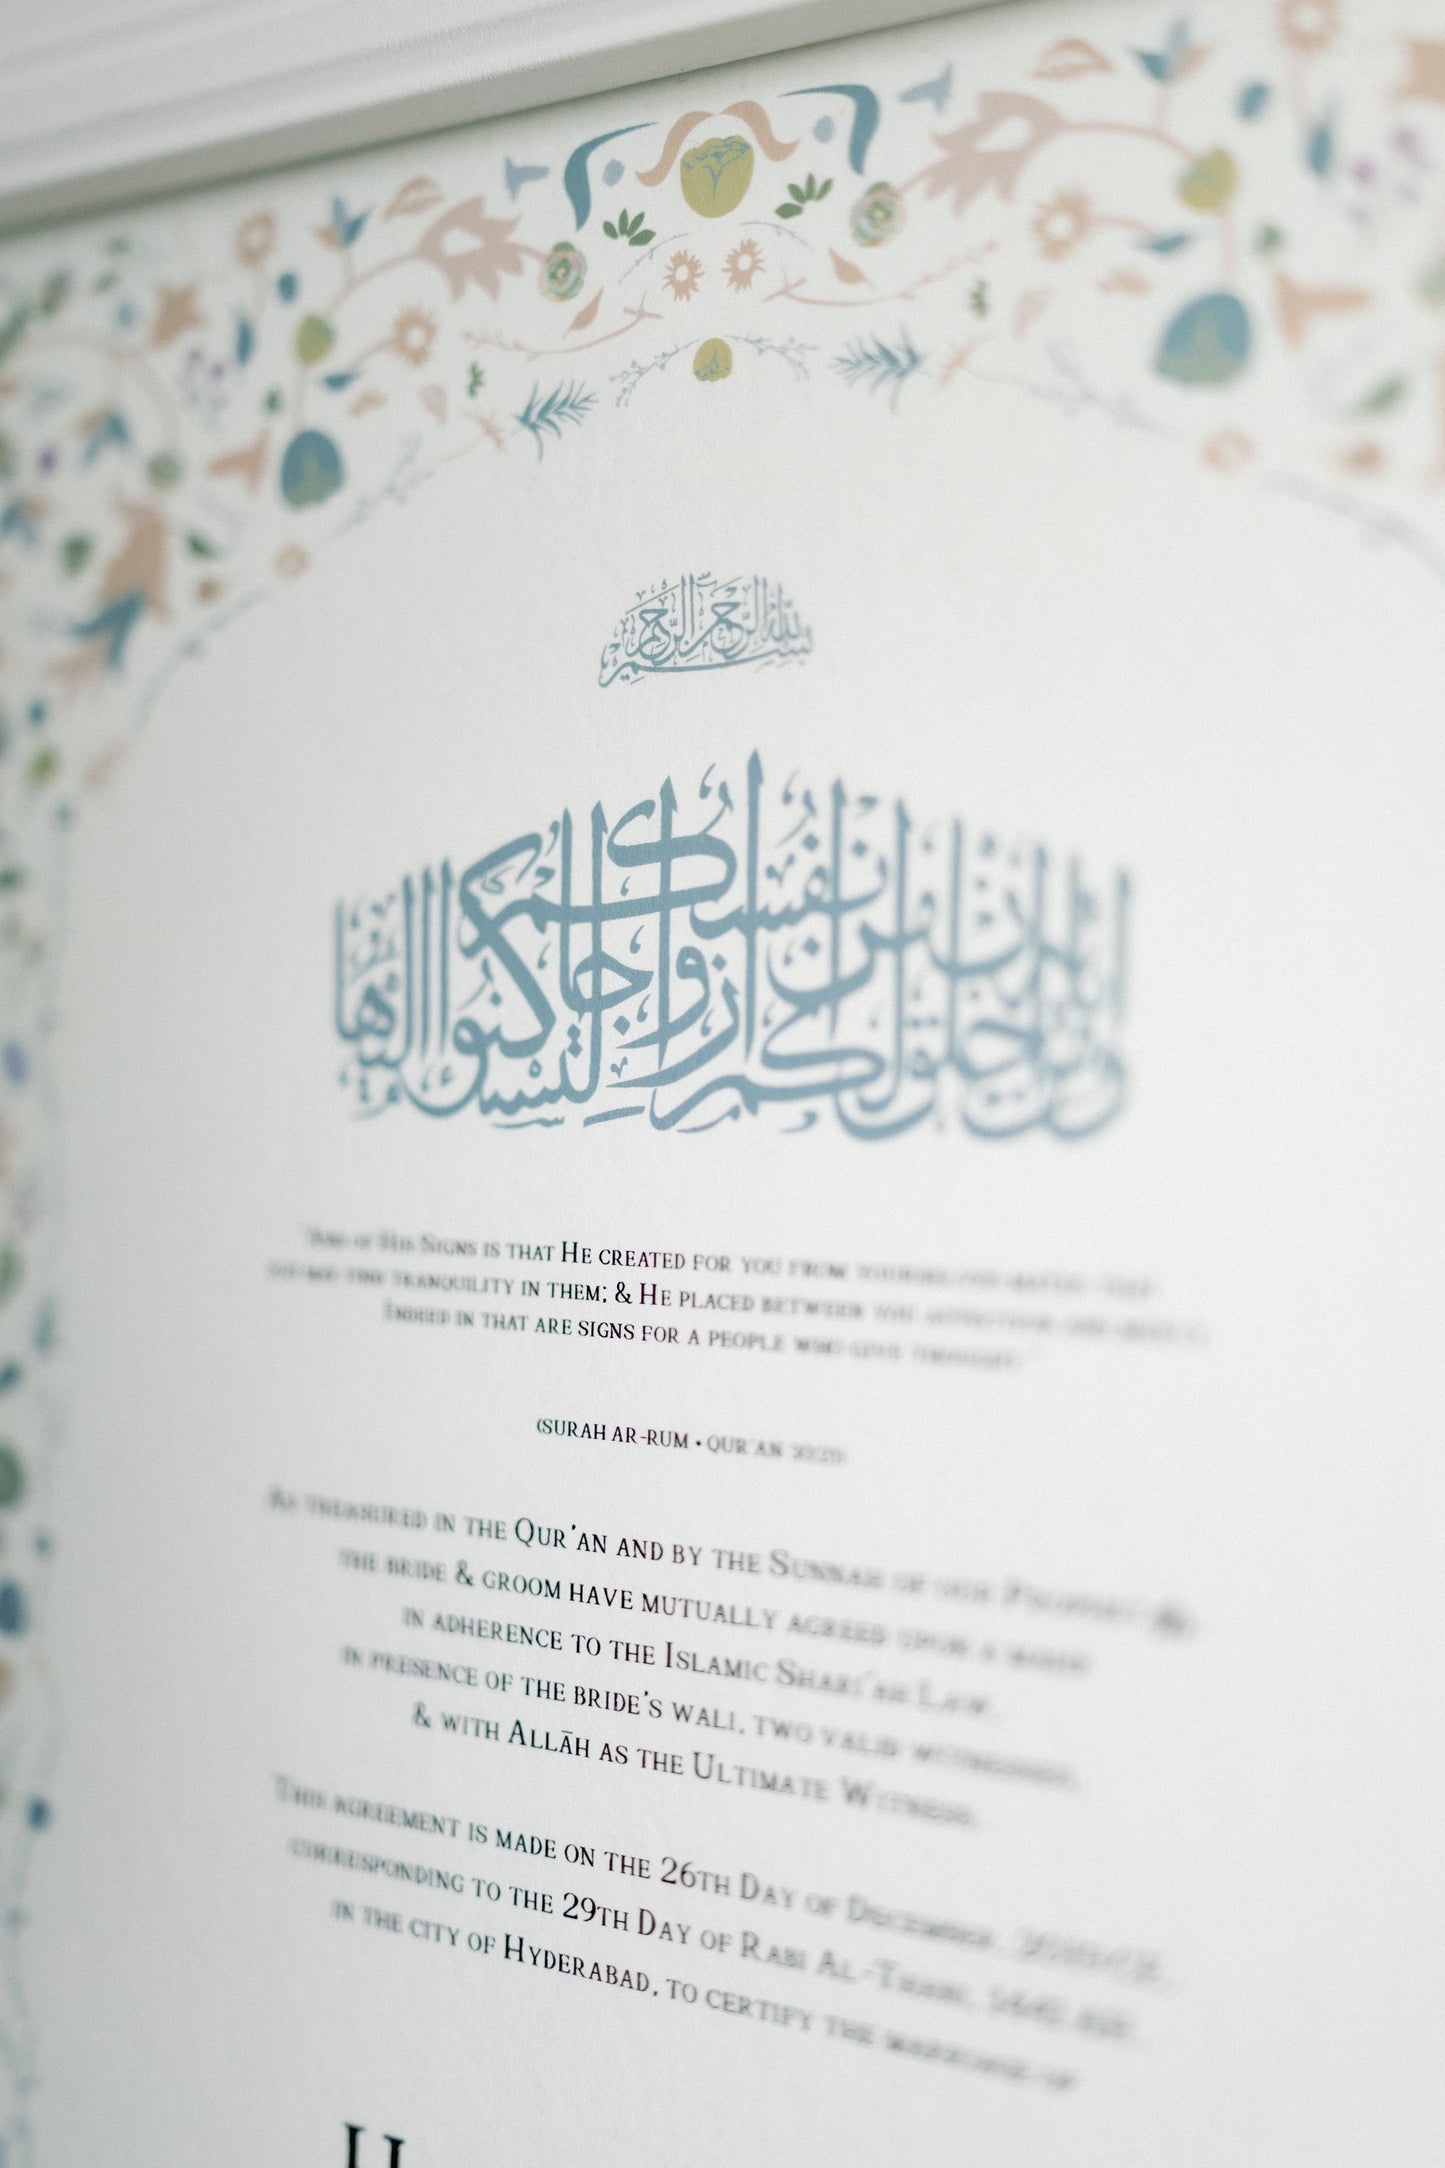 بسم الله الرحمن الرحيم
ومن آياته أن خلق لكم من أنفسكم أزواجا لتسكنوا إليها
"And of His Signs is that He created for you from
you may find tranquility in them; & He placed between you affection and mercy
Indeed in that are signs for a people who give thought."
(Surah Ar-Rum • Qur'an
As treasured in the Qur'an and by the Sunnah of our Prophet
the bride & groom have mutually agreed upon a
in adherence to the Islamic Shari'ah Law
in presence of the bride's wali, two valid witnesses,
& with Allāh as the Ultimate Witness.
This agreement is made on the 26th Day of December,
corresponding to the 29th Day of Rabi Al-Thani,
in the city of Hyderabad, to certify the marriage of